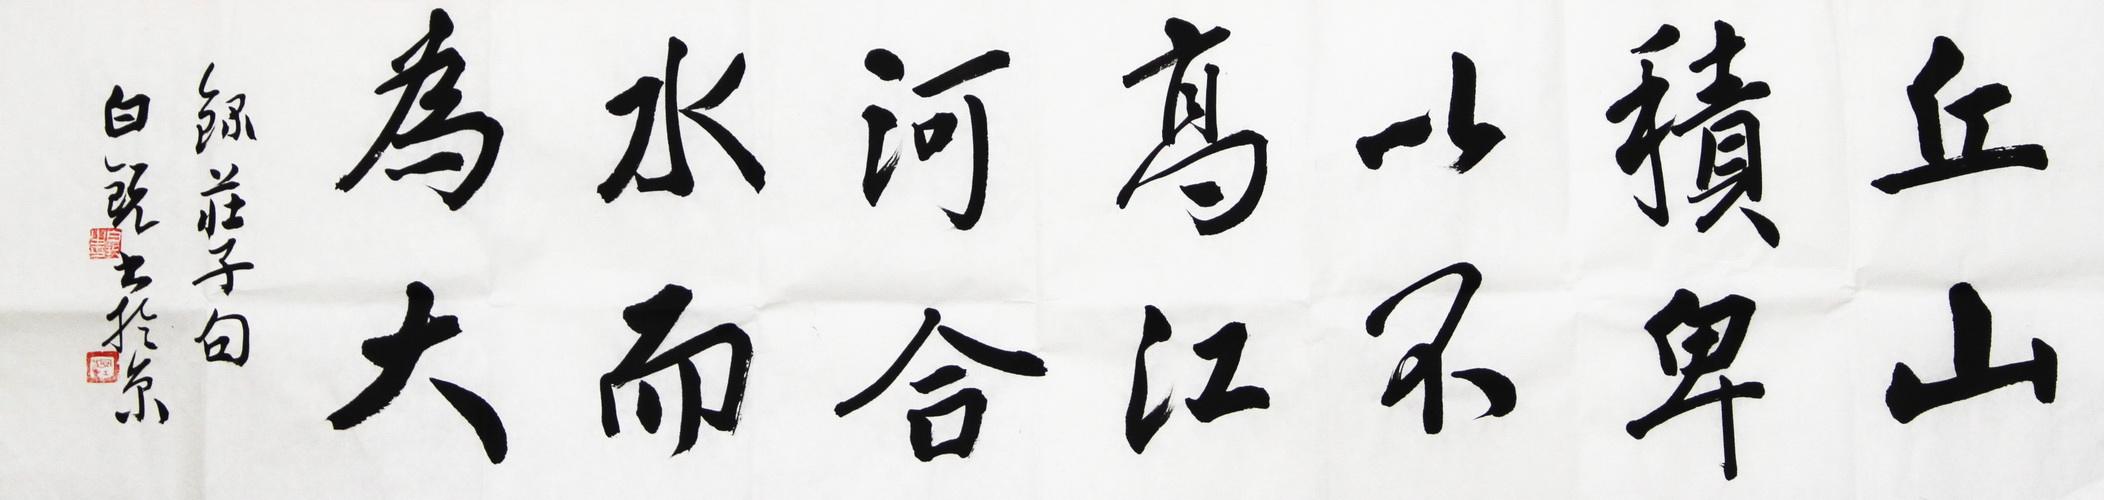 丘山
積卑
以不
高江
河合
水而
為大
錄莊子句
白銳書於京